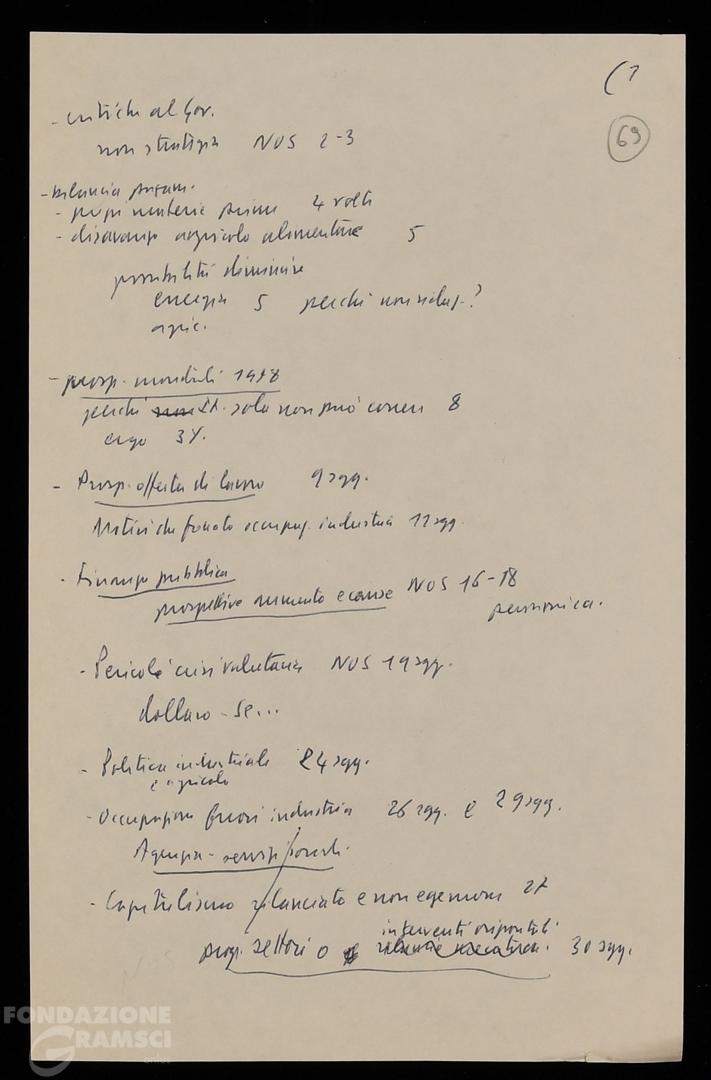 (1
69
- critiche al Gov.
non strategia NUS 2-3
- bilancia pagam.
- materie prime 4 volte
- disavanzo agricolo alimentare 5
possibilità diminuire
energia 5 perché non ?
agric.
- prosp. mondiali 1978
perché sola non può 8
ergo 3%.
- Prosp. offerta di lavoro 9 sgg.
Motivi occupaz. industria 11 sgg.
- Finanza pubblica
prospettive aumento e cause NUS 16-18
- Pericolo crisi valutaria NUS 19 sgg.
dollaro - se...
- Politica industriale 24 sgg.
e agricola
- Occupazione fuori industria 26 sgg. e 29 sgg.
Agenzia - servizi
- Capitalismo rilanciato e non egemone 27
interventi orizzontali
prog. settori o 30 sgg.
FONDAZIONE
GRAMSCI
onlus